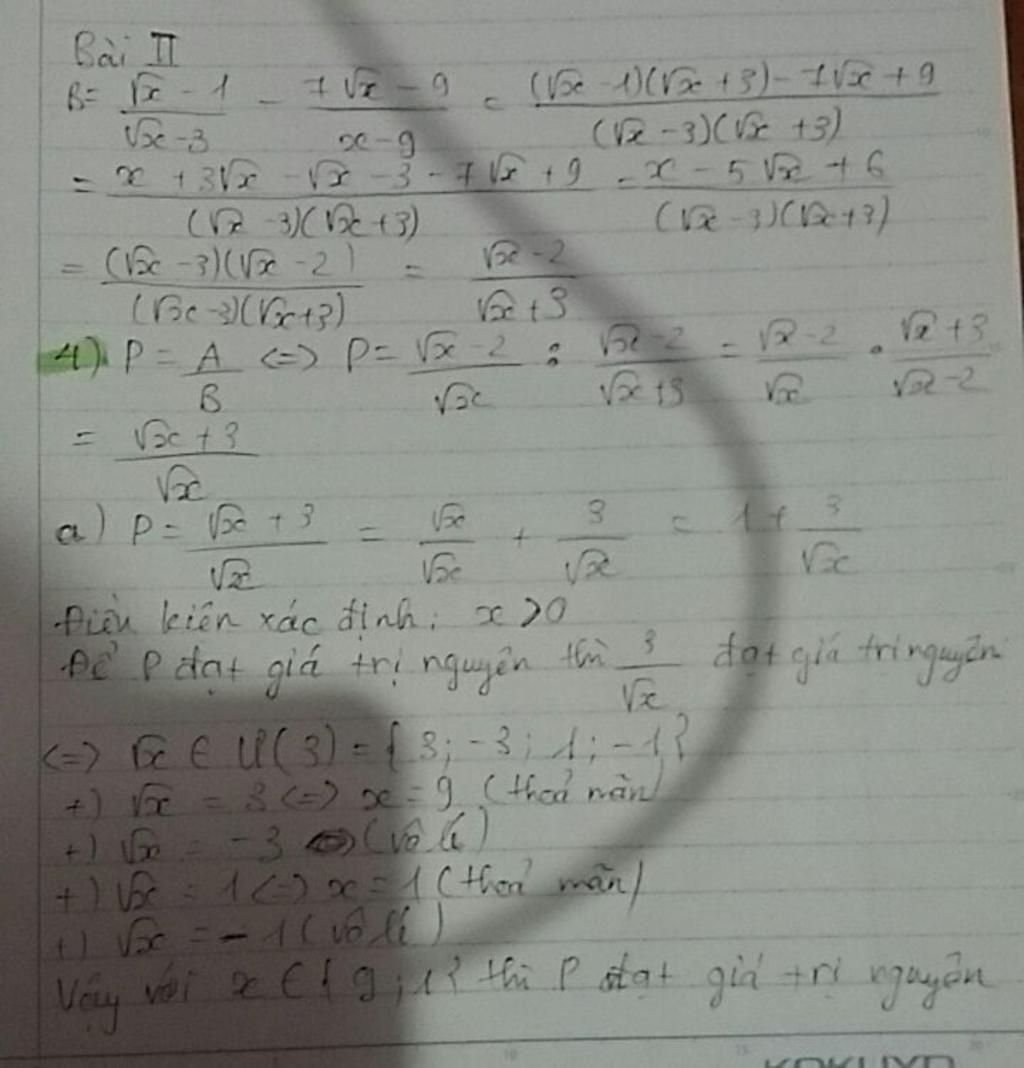 Bài II
B = (√x - 1)/(√x - 3) - (7√x - 9)/(x - 9) = ((√x - 1)(√x + 3) - 7√x + 9)/((√x - 3)(√x + 3))
= (x + 3√x - √x - 3 - 7√x + 9)/((√x - 3)(√x + 3)) = (x - 5√x + 6)/((√x - 3)(√x + 3))
= ((√x - 3)(√x - 2))/((√x - 3)(√x + 3)) = (√x - 2)/(√x + 3)
4) P = A/B <=> P = (√x - 2)/√x : (√x - 2)/(√x + 3) = (√x - 2)/√x . (√x + 3)/(√x - 2)
= (√x + 3)/√x
a) P = (√x + 3)/√x = √x/√x + 3/√x = 1 + 3/√x
Điều kiện xác định: x > 0
Để P đạt giá trị nguyên thì 3/√x đạt giá trị nguyên
<=> √x ∈ Ư(3) = {3; -3; 1; -1}
+) √x = 3 <=> x = 9 (thoả mãn)
+) √x = -3 (vô lí)
+) √x = 1 <=> x = 1 (thoả mãn)
+) √x = -1 (vô lí)
Vậy với x ∈ {9; 1} thì P đạt giá trị nguyên